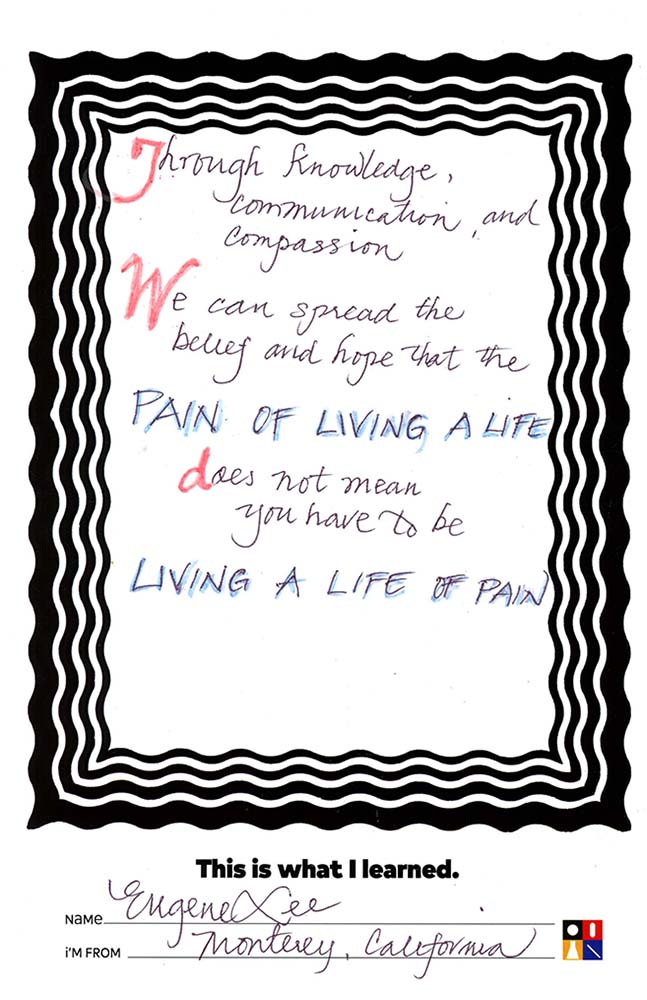 Through knowledge,
communication, and
compassion
We can spread the
belief and hope that the
PAIN OF LIVING A LIFE
does not mean
you have to be
LIVING A LIFE OF PAIN
This is what I learned.
NAME Eugene Lee
i'M FROM Monterey, California